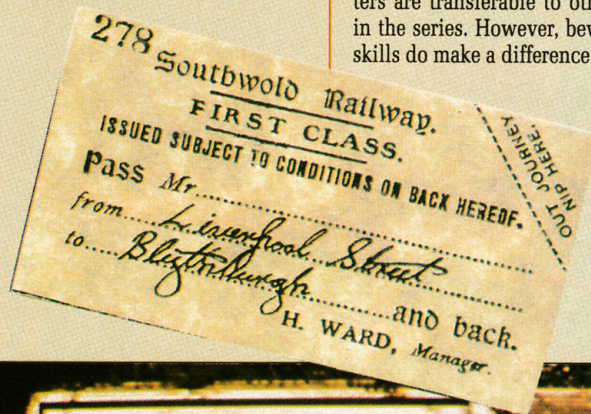 ters are transferable to oth
in the series. However, bev
skills do make a difference
278
Southwold Railway.
FIRST CLASS.
ISSUED SUBJECT TO CONDITIONS ON BACK HEREOF.
Pass Mr.
from Liverpool Street
to Blythburgh and back.
H. WARD, Manager.
OUT JOURNEY
NIP HERE.